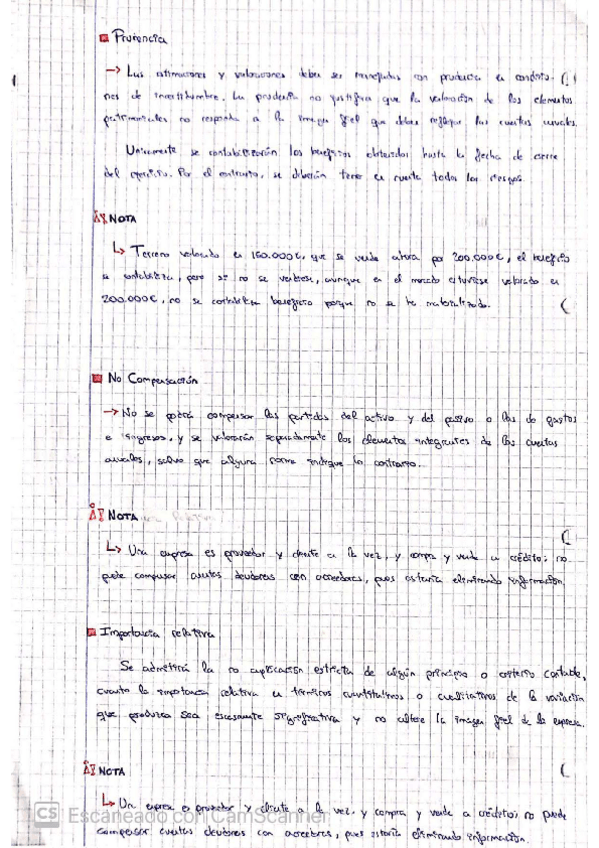 Prudencia
→ Las estimaciones y valoraciones deben ser manejadas con prudencia en condicio-
nes de incertidumbre. La prudencia no justifica que la valoración de los elementos
patrimoniales no responda a la imagen fiel que deben reflejar las cuentas anuales.
Únicamente se contabilizarán los beneficios obtenidos hasta la fecha de cierre
del ejercicio. Por el contrario, se deberán tener en cuenta todos los riesgos.
NOTA
↳ Terreno valorado en 150.000€, que se vende ahora por 200.000€, el beneficio
se contabiliza, pero si no se vendiese, aunque en el mercado estuviese valorado en
200.000€, no se contabiliza beneficio porque no se ha materializado.
No Compensación
→ No se podrá compensar las partidas del activo y del pasivo o las de gastos
e ingresos, y se valorarán separadamente los elementos integrantes de las cuentas
anuales, salvo que alguna norma indique lo contrario.
NOTA
↳ Una empresa es proveedor y cliente a la vez, y compra y vende a crédito; no
puede compensar cuentas deudoras con acreedores, pues estaría eliminando información.
Importancia relativa
Se admitirá la no aplicación estricta de algún principio o criterio contable,
cuanto la importancia relativa en términos cuantitativos o cualitativos de la variación
que produzca sea escasamente significativa y no altere la imagen fiel de la empresa.
NOTA
↳ Un empresa es proveedor y cliente a la vez, y compra y vende a crédito; no puede
compensar cuentas deudoras con acreedores, pues estaría eliminando información.
CS Escaneado con CamScanner